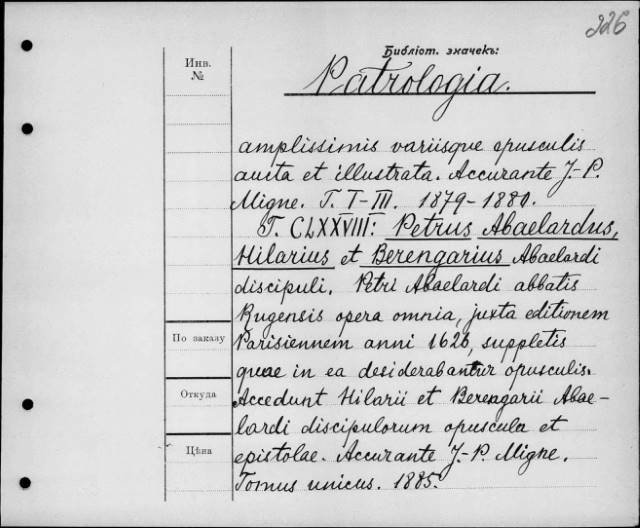 226
Библіот. значекъ:
Инв.
№
Patrologia.
amplissimis variisque opusculis
aucta et illustrata. Accurante J.-P.
Migne. T. I-III. 1879-1880.
T. CLXXVIII: Petrus Abaelardus,
Hilarius et Berengarius Abaelardi
discipuli. Petri Abaelardi abbatis
Rugensis opera omnia, juxta editionem
Parisiennem anni 1626, suppletis
quae in ea desiderabantur opusculis.
Accedunt Hilarii et Berengarii Abae-
lardi discipulorum opuscula et
epistolae. Accurante J.-P. Migne.
Tomus unicus. 1885.
По заказу
Откуда
Цѣна